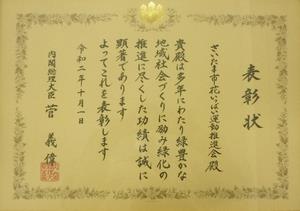 表彰状
さいたま市花いっぱい運動推進会殿
貴殿は多年にわたり緑豊かな
地域社会づくりに励み緑化の
推進に尽くした功績は誠に
顕著であります
よってこれを表彰します
令和二年十月一日
内閣総理大臣 菅義偉